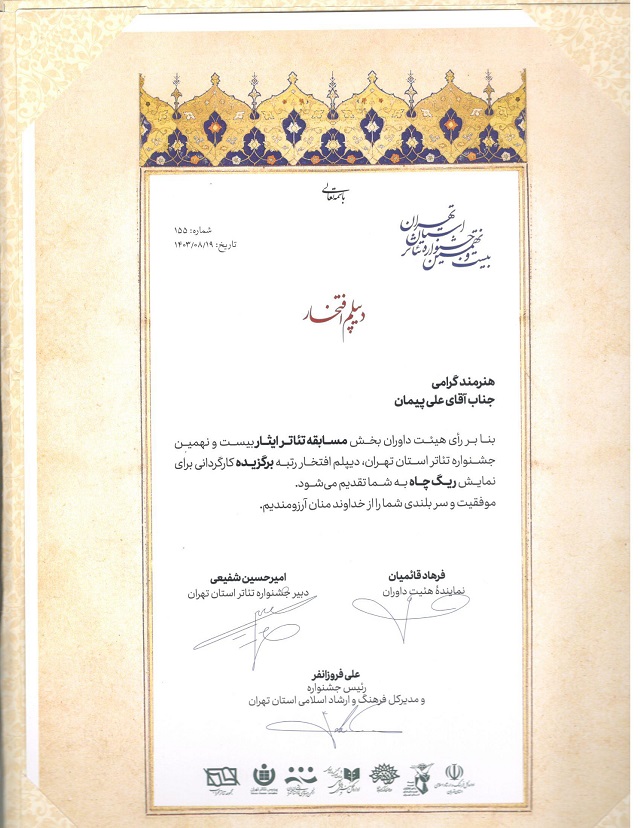 باسمه‌تعالی
بیست و نهمین جشنواره تئاتر استان تهران
شماره: ۱۵۵
تاریخ: ۱۴۰۳/۰۸/۱۹
دیپلم افتخار
هنرمند گرامی
جناب آقای علی پیمان
بنا بر رأی هیئت داوران بخش مسابقه تئاتر ایثار بیست و نهمین
جشنواره تئاتر استان تهران، دیپلم افتخار رتبه برگزیده کارگردانی برای
نمایش ریگ چاه به شما تقدیم می‌شود.
موفقیت و سر بلندی شما را از خداوند منان آرزومندیم.
فرهاد قائمیان
نمایندهٔ هئیت داوران
امیرحسین شفیعی
دبیر جشنواره تئاتر استان تهران
علی فروزانفر
رئیس جشنواره
و مدیرکل فرهنگ و ارشاد اسلامی استان تهران